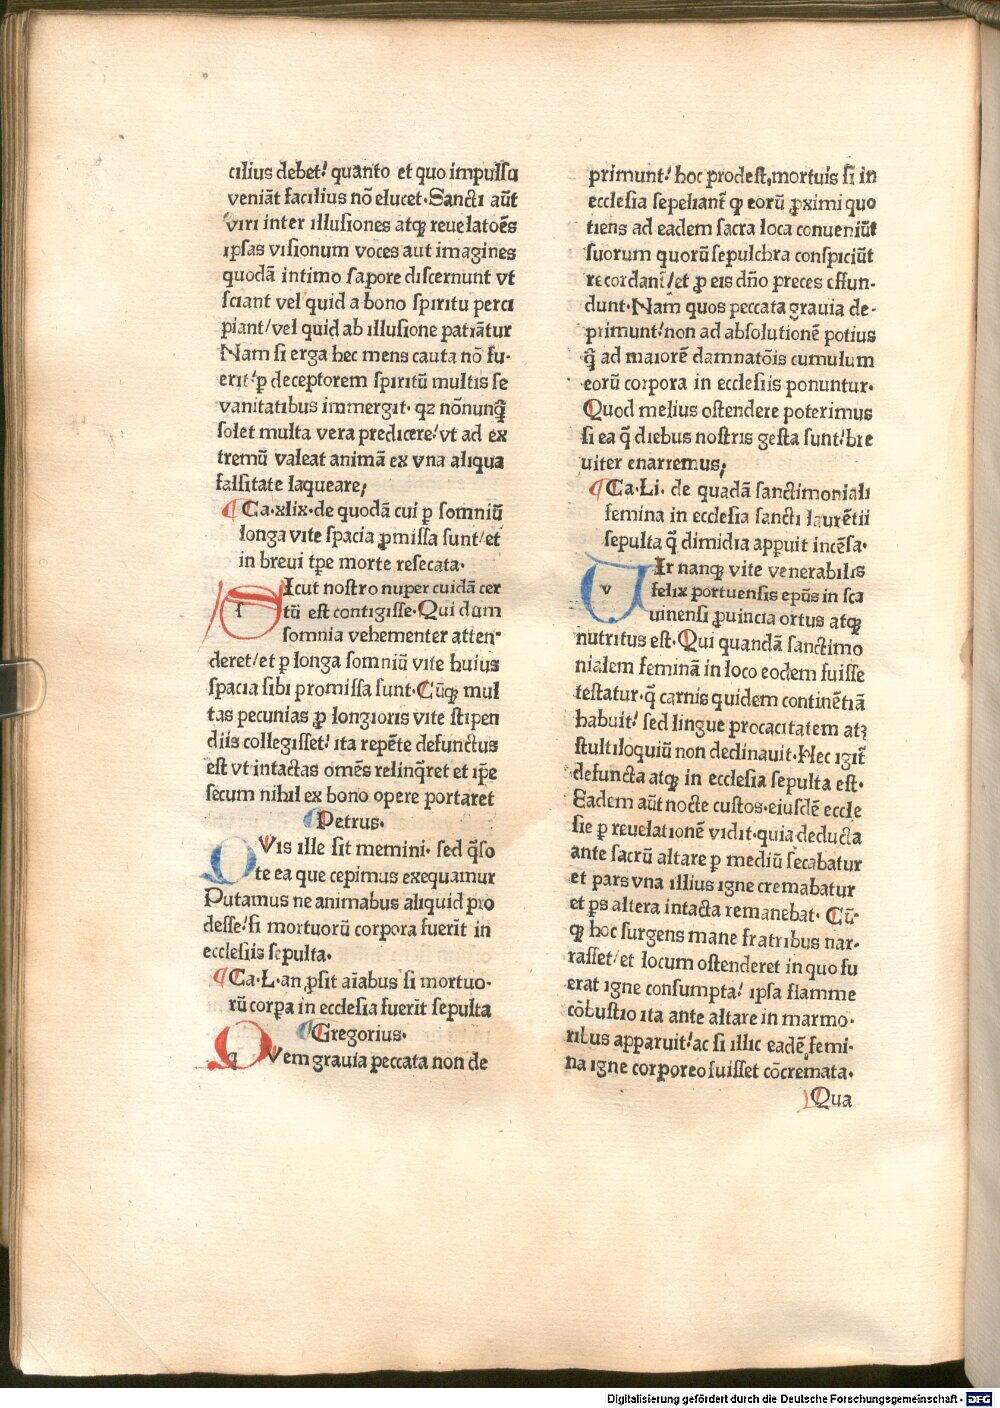 cilius debet! quanto et quo impulsa
veniāt facilius nō elucet·Sancti aūt
viri inter illusiones atqꝫ reuelatoēs
ipsas visionum voces aut imagines
quodā intimo sapore discernunt vt
sciant vel quid a bono spiritu perci
piant/vel quid ab illusione patiātur
Nam si erga hec mens cauta nō fu-
erit!ꝑ deceptorem spiritū multis se
vanitatibus immergit· qꝫ nōnunq̄
solet multa vera predicere!vt ad ex
tremū valeat animā ex vna aliqua
falsitate laqueare;
Ca·xlix·de quodā cui ꝑ somniū
longa vite spacia ꝓmissa sunt/et
in breui tꝑe morte resecata·
s
Icut nostro nuper cuidā cer
tū est contigisse·Qui dum
somnia vehementer atten-
deret/et ꝑ longa somniū vite huius
spacia sibi promissa sunt·Cūqꝫ mul
tas pecunias ꝓ longioris vite stipen
diis collegisset! ita repēte defunctus
est vt intactas omēs relinq̄ret et ip̄e
secum nihil ex bono opere portaret
Petrus·
QVis ille sit memini· sed q̄so
te ea que cepimus exequamur
Putamus ne animabus aliquid pro
desse!si mortuorū corpora fuerit in
ecclesiis sepulta·
Ca·L·an ꝓsit aīabus si mortuo-
rū corꝑa in ecclesia fuerit sepulta
Gregorius·
q
QVem grauia peccata non de
primunt! hoc prodest,mortuis si in
ecclesia sepeliant̄ ꝙ eorū ꝓximi quo
tiens ad eadem sacra loca conueniūt
suorum quorū sepulchra conspiciūt
recordant̄/et ꝓ eis dño preces effun-
dunt·Nam quos peccata grauia de-
primunt!non ad absolutionē potius
q̄ ad maiorē damnatōis cumulum
eorū corpora in ecclesiis ponuntur·
Quod melius ostendere poterimus
si ea q̄ diebus nostris gesta sunt!bre
uiter enarremus;
Ca·Li· de quadā sanctimoniali
femina in ecclesia sancti laurētii
sepulta q̄ dimidia apꝑuit incēsa·
v
VIr nanqꝫ vite venerabilis
felix portuensis epūs in sca
uinensi ꝓuincia ortus atqꝫ
nutritus est·Qui quandā sanctimo
nialem feminā in loco eodem fuisse
testatur·q̄ carnis quidem continētiā
habuit! sed lingue procacitatem atꝫ
stultiloquiū non declinauit·Hec igit̄
defuncta atqꝫ in ecclesia sepulta est·
Eadem aūt nocte custos·eiusdē eccle
sie ꝑ reuelationē vidit·quia deducta
ante sacrū altare ꝑ mediū secabatur
et pars vna illius igne cremabatur
et ꝑs altera intacta remanebat· Cū-
qꝫ hoc surgens mane fratribus nar-
rasset/et locum ostenderet in quo fu
erat igne consumpta! ipsa flamme
cōbustio ita ante altare in marmo-
ribus apparuit!ac si illic eadē femi-
na igne corporeo fuisset cōcremata·
Qua
Digitalisierung gefördert durch die Deutsche Forschungsgemeinschaft - DFG